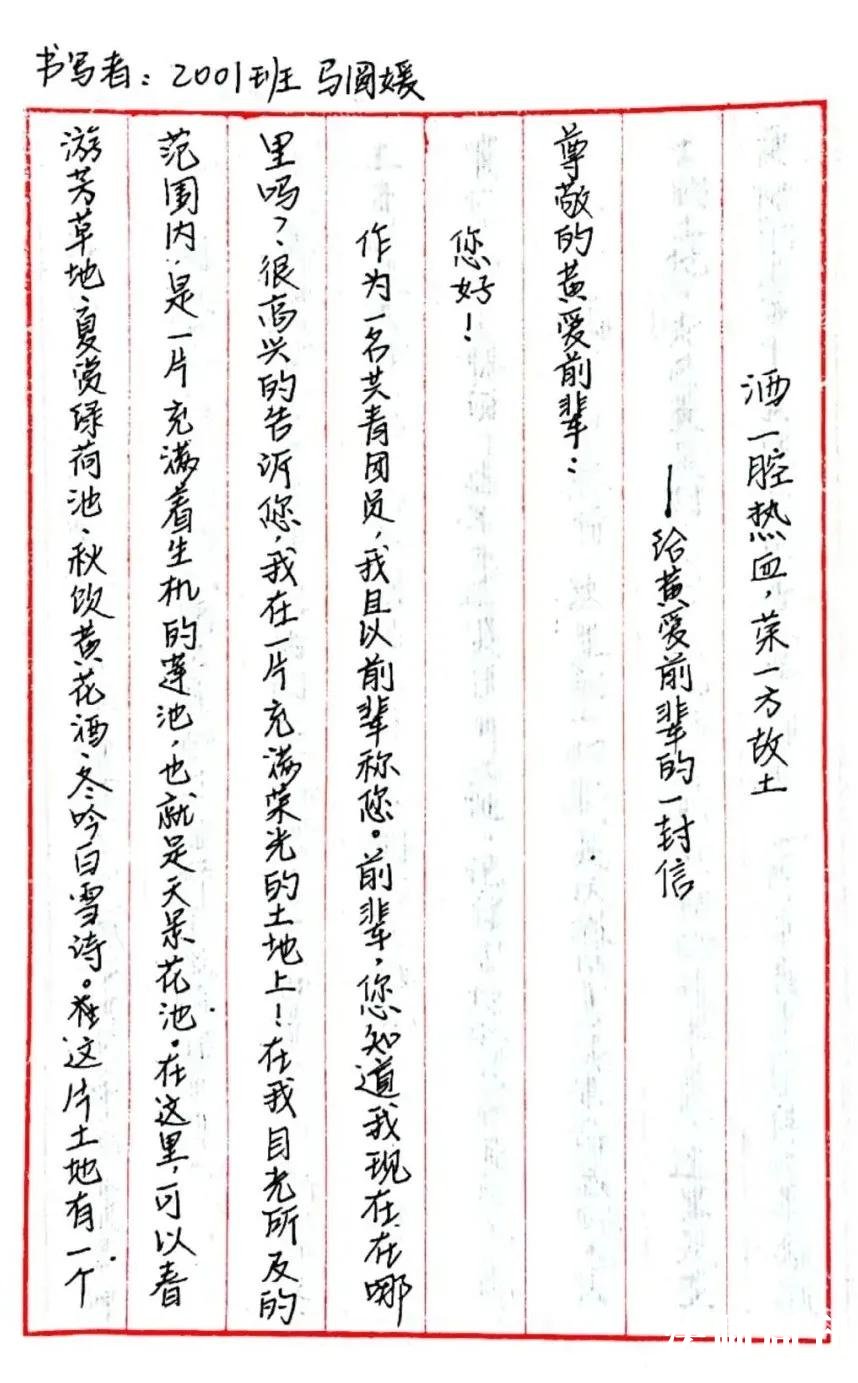 书写者：2001班 马圆媛
洒一腔热血，荣一方故土
—给黄爱前辈的一封信
尊敬的黄爱前辈：
您好！
作为一名共青团员，我且以前辈称您。前辈，您知道我现在在哪
里吗？很高兴的告诉您，我在一片充满荣光的土地上！在我目光所及的
范围内，是一片充满着生机的莲池，也就是天景花池。在这里，可以春
游芳草地、夏赏绿荷池、秋饮黄花酒、冬吟白雪诗。在这片土地有一个